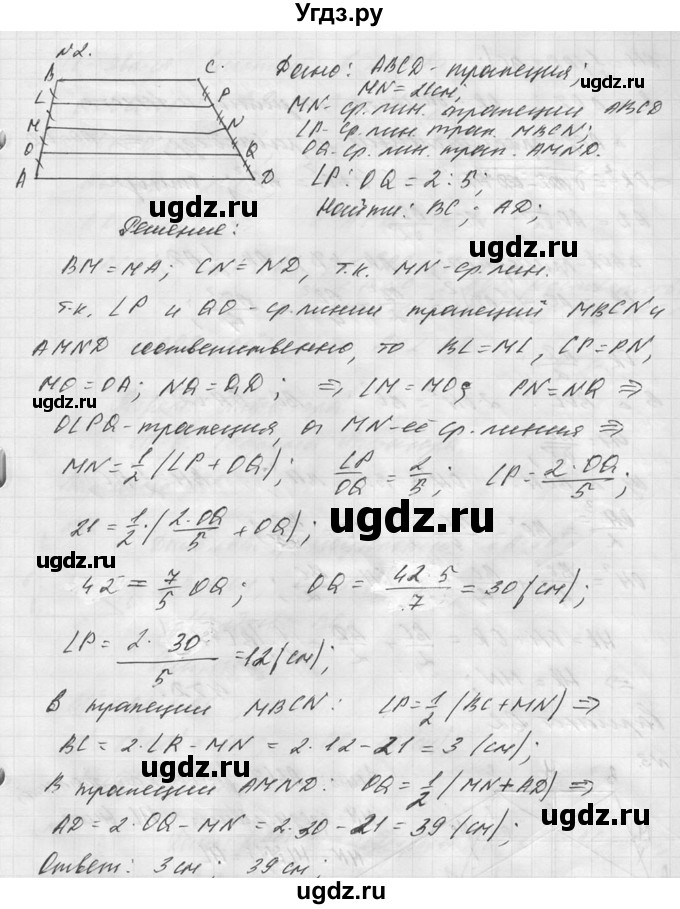 Угдз.ру
N2.
B C.
L P
M N
O Q
A D
Дано: ABCD-трапеция;
MN=21см;
MN-ср.лин. трапеции ABCD
LP-ср.лин. трап. MBCN;
OQ-ср.лин. трап. AMND.
LP:OQ=2:5;
Найти: BC; AD;
Решение:
BM=MA; CN=ND, т.к. MN-ср.лин.
т.к. LP и QO-ср.линии трапеций MBCN и
AMND соответственно, то BL=ML, CP=PN,
MO=OA; NQ=QD; ⇒ LM=MO; PN=NQ ⇒
OLPQ-трапеция, а MN-её ср.линия ⇒
MN=1/2(LP+OQ); LP/OQ=2/5; LP=2·OQ/5;
21=1/2·(2·OQ/5+OQ);
42=7/5 OQ; OQ=42·5/7=30(см);
LP=2·30/5=12(см);
В трапеции MBCN: LP=1/2(BC+MN) ⇒
BC=2·LP-MN=2·12-21=3(см);
В трапеции AMND: OQ=1/2(MN+AD) ⇒
AD=2·OQ-MN=2·30-21=39(см);
Ответ: 3см; 39см;
ugdz.ru
ugdz.ru
ugdz.ru
ugdz.ru
ugdz.ru
ugdz.ru
ugdz.ru
ugdz.ru
ugdz.ru
ugdz.ru
ugdz.ru